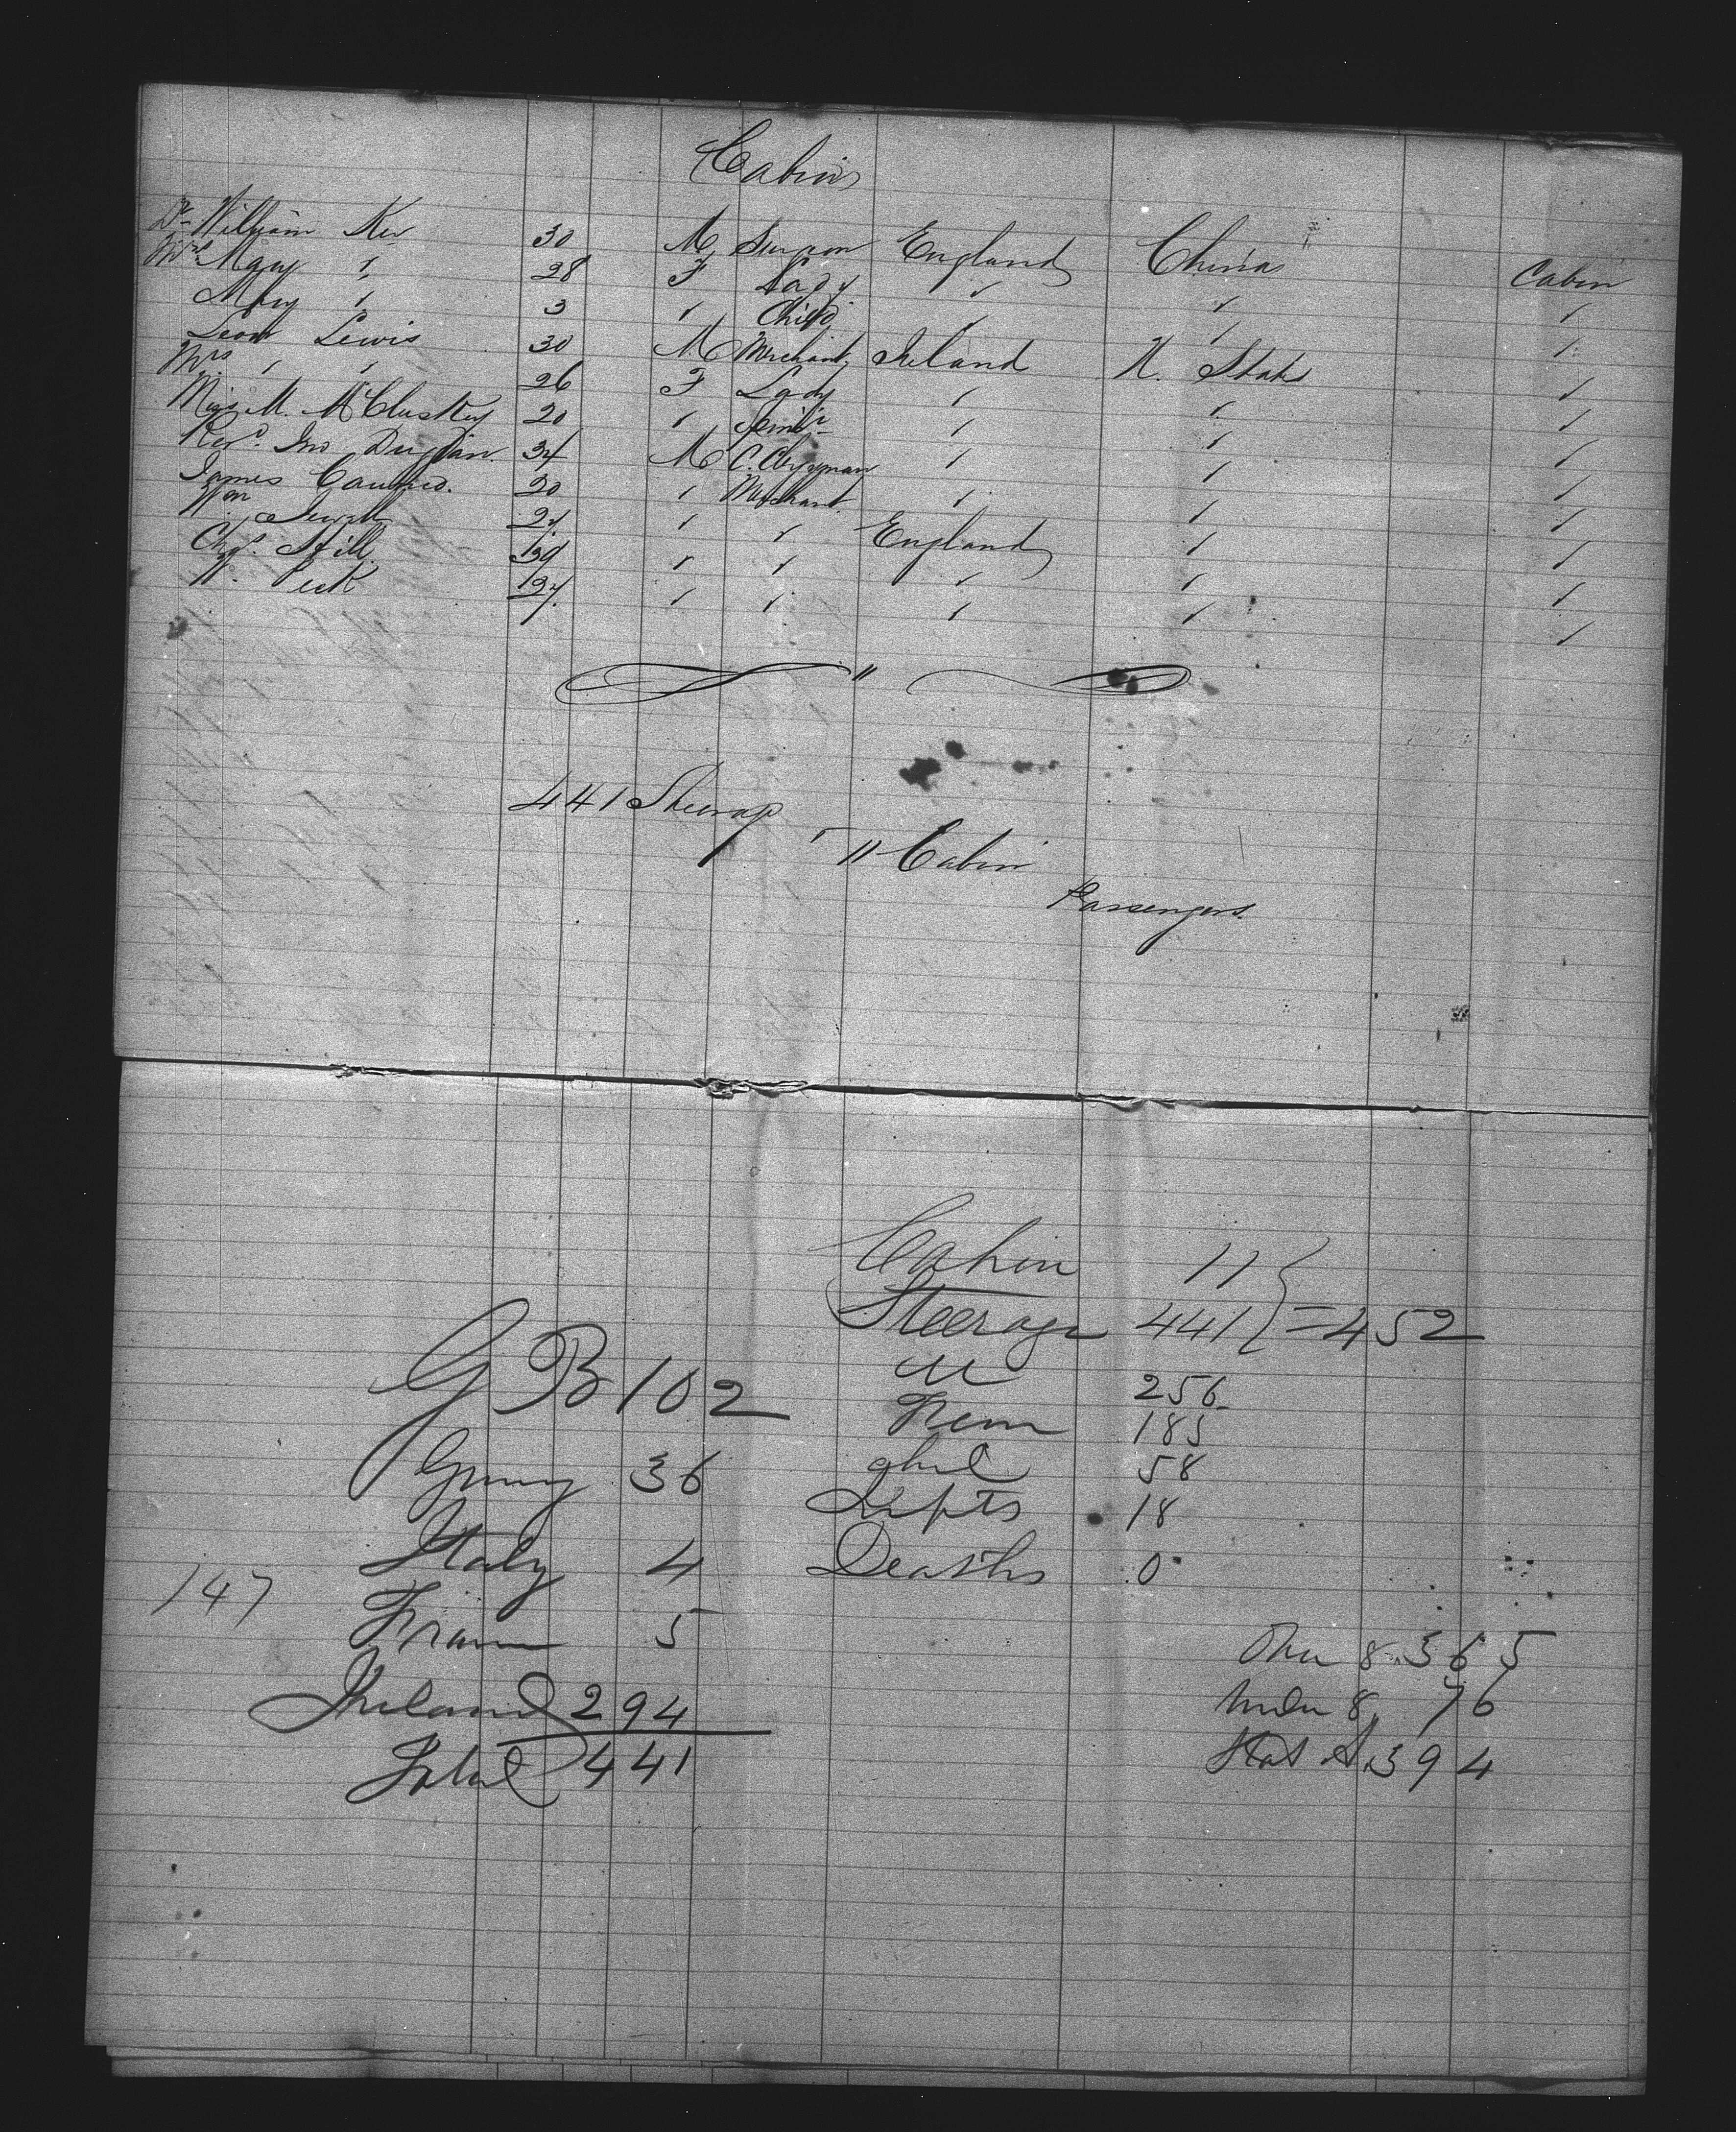 Cabin
Dr William Ker 30 M Surgeon England China Cabin
Mrs Mary " 28 F Lady " " "
Mary " 3 " Child " " "
Leon Lewis 30 M Merchant Ireland U. States "
Mrs " " 26 F Lady " " "
Miss M. McCluskey 20 " " " "
Revd. Jno 34 M C. Clergyman " " "
James 20 " Merchant " " "
Wm 24 " " England " "
Chas. Still 30 " " " " "
W. Peck 24 " " " " "
"
441 Steerage
11 Cabin
Passengers.
Cabin 11
Steerage 441 } = 452
G B 102
M 256
Fem 185
Gmny 36
Chil 58
Infts 18
Italy 4
Deaths 0
147
Franc 5
Over 8 365
Ireland 294
Under 8 76
Total 441
Stat A 394